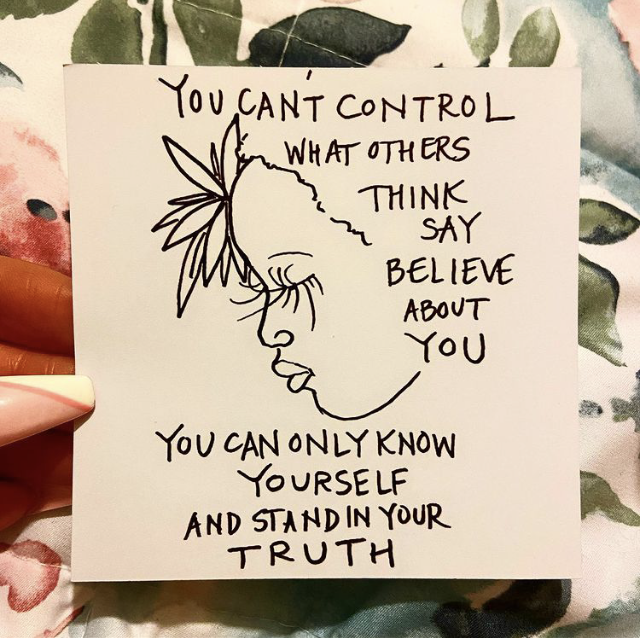 YOU CAN'T CONTROL
WHAT OTHERS
THINK
SAY
BELIEVE
ABOUT
YOU
YOU CAN ONLY KNOW
YOURSELF
AND STAND IN YOUR
TRUTH